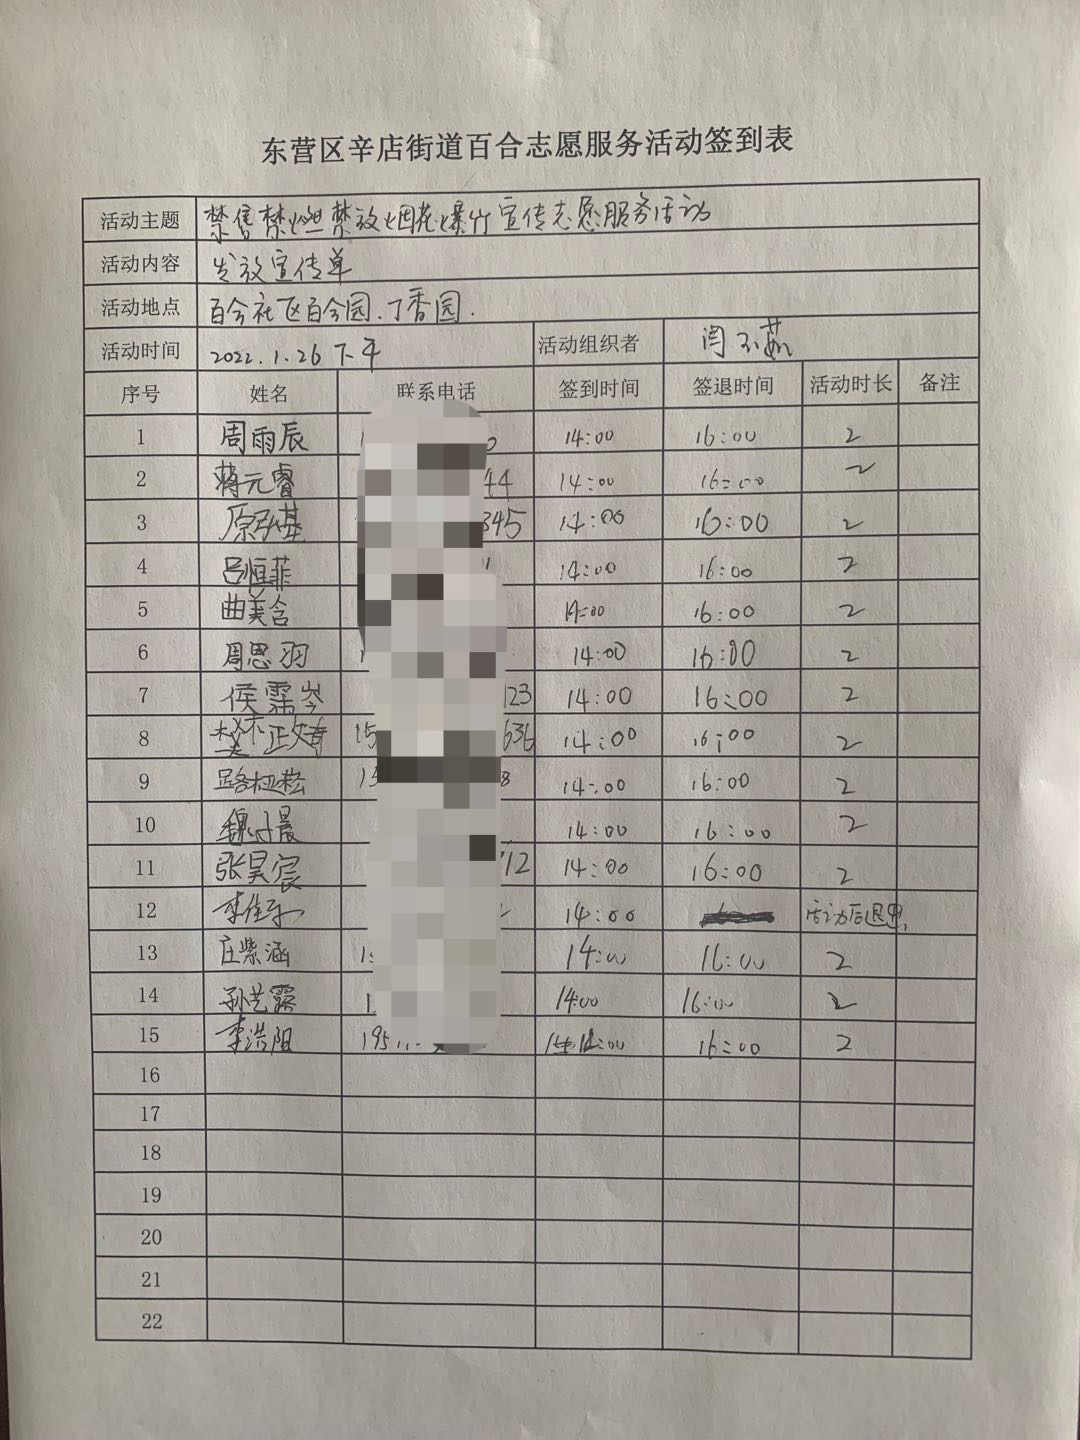 东营区辛店街道百合志愿服务活动签到表
活动主题 禁售禁燃禁放烟花爆竹宣传志愿服务活动
活动内容 发放宣传单
活动地点 百合社区百合园.丁香园.
活动时间 2022.1.26下午 活动组织者 闫
序号 姓名 联系电话 签到时间 签退时间 活动时长 备注
1 周雨辰 14:00 16:00 2
2 蒋元睿 44 14:00 16:00 2
3 原弘基 345 14:00 16:00 2
4 吕恒菲 14:00 16:00 2
5 曲美含 14:00 16:00 2
6 周思羽 14:00 16:00 2
7 侯霈岑 123 14:00 16:00 2
8 正 15 636 14:00 16:00 2
9 路 15 8 14:00 16:00 2
10 魏子晨 14:00 16:00 2
11 张昊宸 712 14:00 16:00 2
12 李佳乐 14:00 活动后退出.
13 庄紫涵 14:00 16:00 2
14 孙艺霖 14:00 16:00 2
15 李浩阳 195 14:00 16:00 2
16
17
18
19
20
21
22